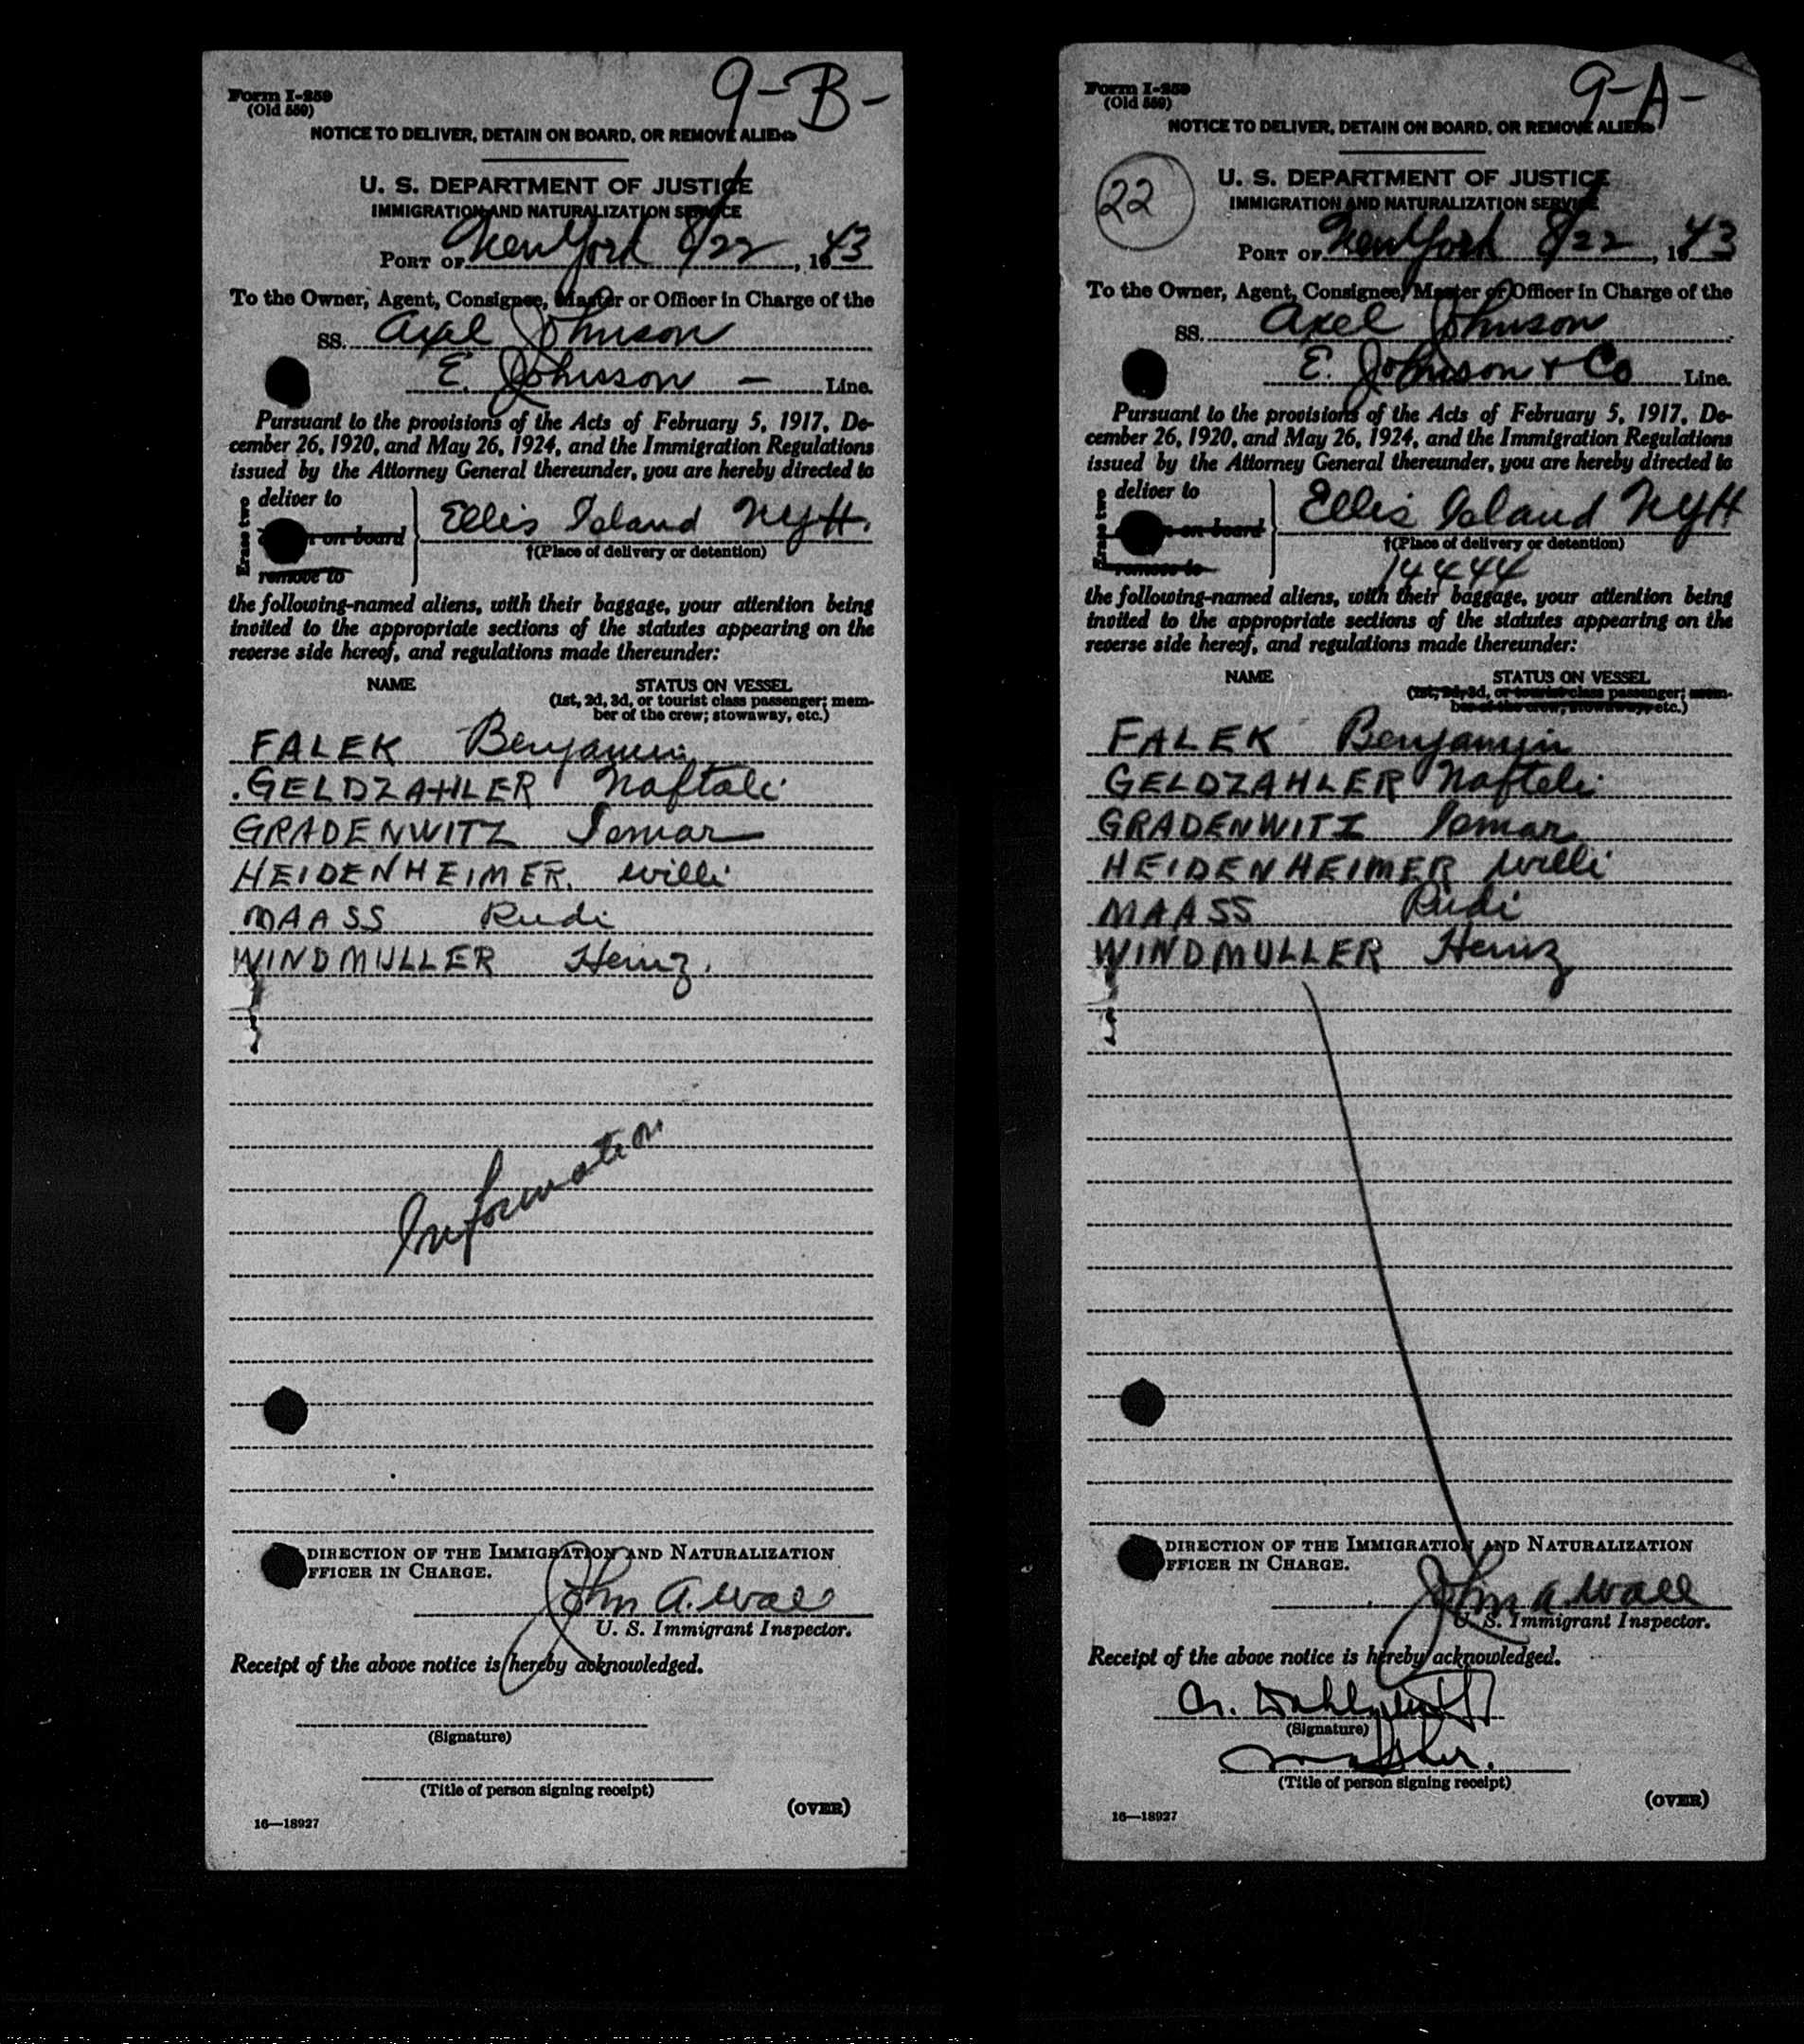 9-B-
Form I-259
(Old 559)
NOTICE TO DELIVER, DETAIN ON BOARD, OR REMOVE ALIENS
U. S. DEPARTMENT OF JUSTICE
IMMIGRATION AND NATURALIZATION SERVICE
PORT OF New York 8/22, 1943
To the Owner, Agent, Consignee, Master or Officer in Charge of the
SS. Axel Johnson
E. Johnson — Line.
Pursuant to the provisions of the Acts of February 5, 1917, De-
cember 26, 1920, and May 26, 1924, and the Immigration Regulations
issued by the Attorney General thereunder, you are hereby directed to
Erase two
deliver to
on board
remove to
Ellis Island NYH.
†(Place of delivery or detention)
the following-named aliens, with their baggage, your attention being
invited to the appropriate sections of the statutes appearing on the
reverse side hereof, and regulations made thereunder:
NAME STATUS ON VESSEL
(1st, 2d, 3d, or tourist class passenger; mem-
ber of the crew; stowaway, etc.)
FALEK Benjamin
GELDZAHLER Naftali
GRADENWITZ Ismar
HEIDENHEIMER. Willi
MAASS Rudi
WINDMULLER Heinz.
Information
DIRECTION OF THE IMMIGRATION AND NATURALIZATION
FFICER IN CHARGE.
John A. Wall
U. S. Immigrant Inspector.
Receipt of the above notice is hereby acknowledged.
(Signature)
(Title of person signing receipt)
(OVER)
16—18927
9-A-
Form I-259
(Old 559)
NOTICE TO DELIVER, DETAIN ON BOARD, OR REMOVE ALIENS
22
U. S. DEPARTMENT OF JUSTICE
IMMIGRATION AND NATURALIZATION SERVICE
PORT OF New York 8/22, 1943
To the Owner, Agent, Consignee, Master or Officer in Charge of the
SS. Axel Johnson
E. Johnson & Co Line.
Pursuant to the provisions of the Acts of February 5, 1917, De-
cember 26, 1920, and May 26, 1924, and the Immigration Regulations
issued by the Attorney General thereunder, you are hereby directed to
Erase two
deliver to
on board
remove to
Ellis Island NYH
†(Place of delivery or detention)
14444
the following-named aliens, with their baggage, your attention being
invited to the appropriate sections of the statutes appearing on the
reverse side hereof, and regulations made thereunder:
NAME STATUS ON VESSEL
(1st, 2d, 3d, or tourist class passenger; mem-
ber of the crew; stowaway, etc.)
FALEK Benjamin
GELDZAHLER Nafteli
GRADENWITZ Ismar
HEIDENHEIMER Willi
MAASS Rudi
WINDMULLER Heinz
DIRECTION OF THE IMMIGRATION AND NATURALIZATION
FFICER IN CHARGE.
John A. Wall
U. S. Immigrant Inspector.
Receipt of the above notice is hereby acknowledged.
(Signature)
(Title of person signing receipt)
(OVER)
16—18927